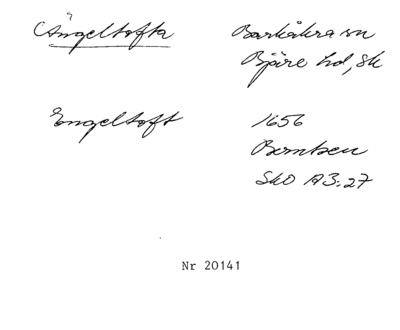 Ängeltofta
Barkåkra sn
Bjäre hd, Sk
Engeltoft
1656
Berntsen
SkO A3:27
Nr 20141